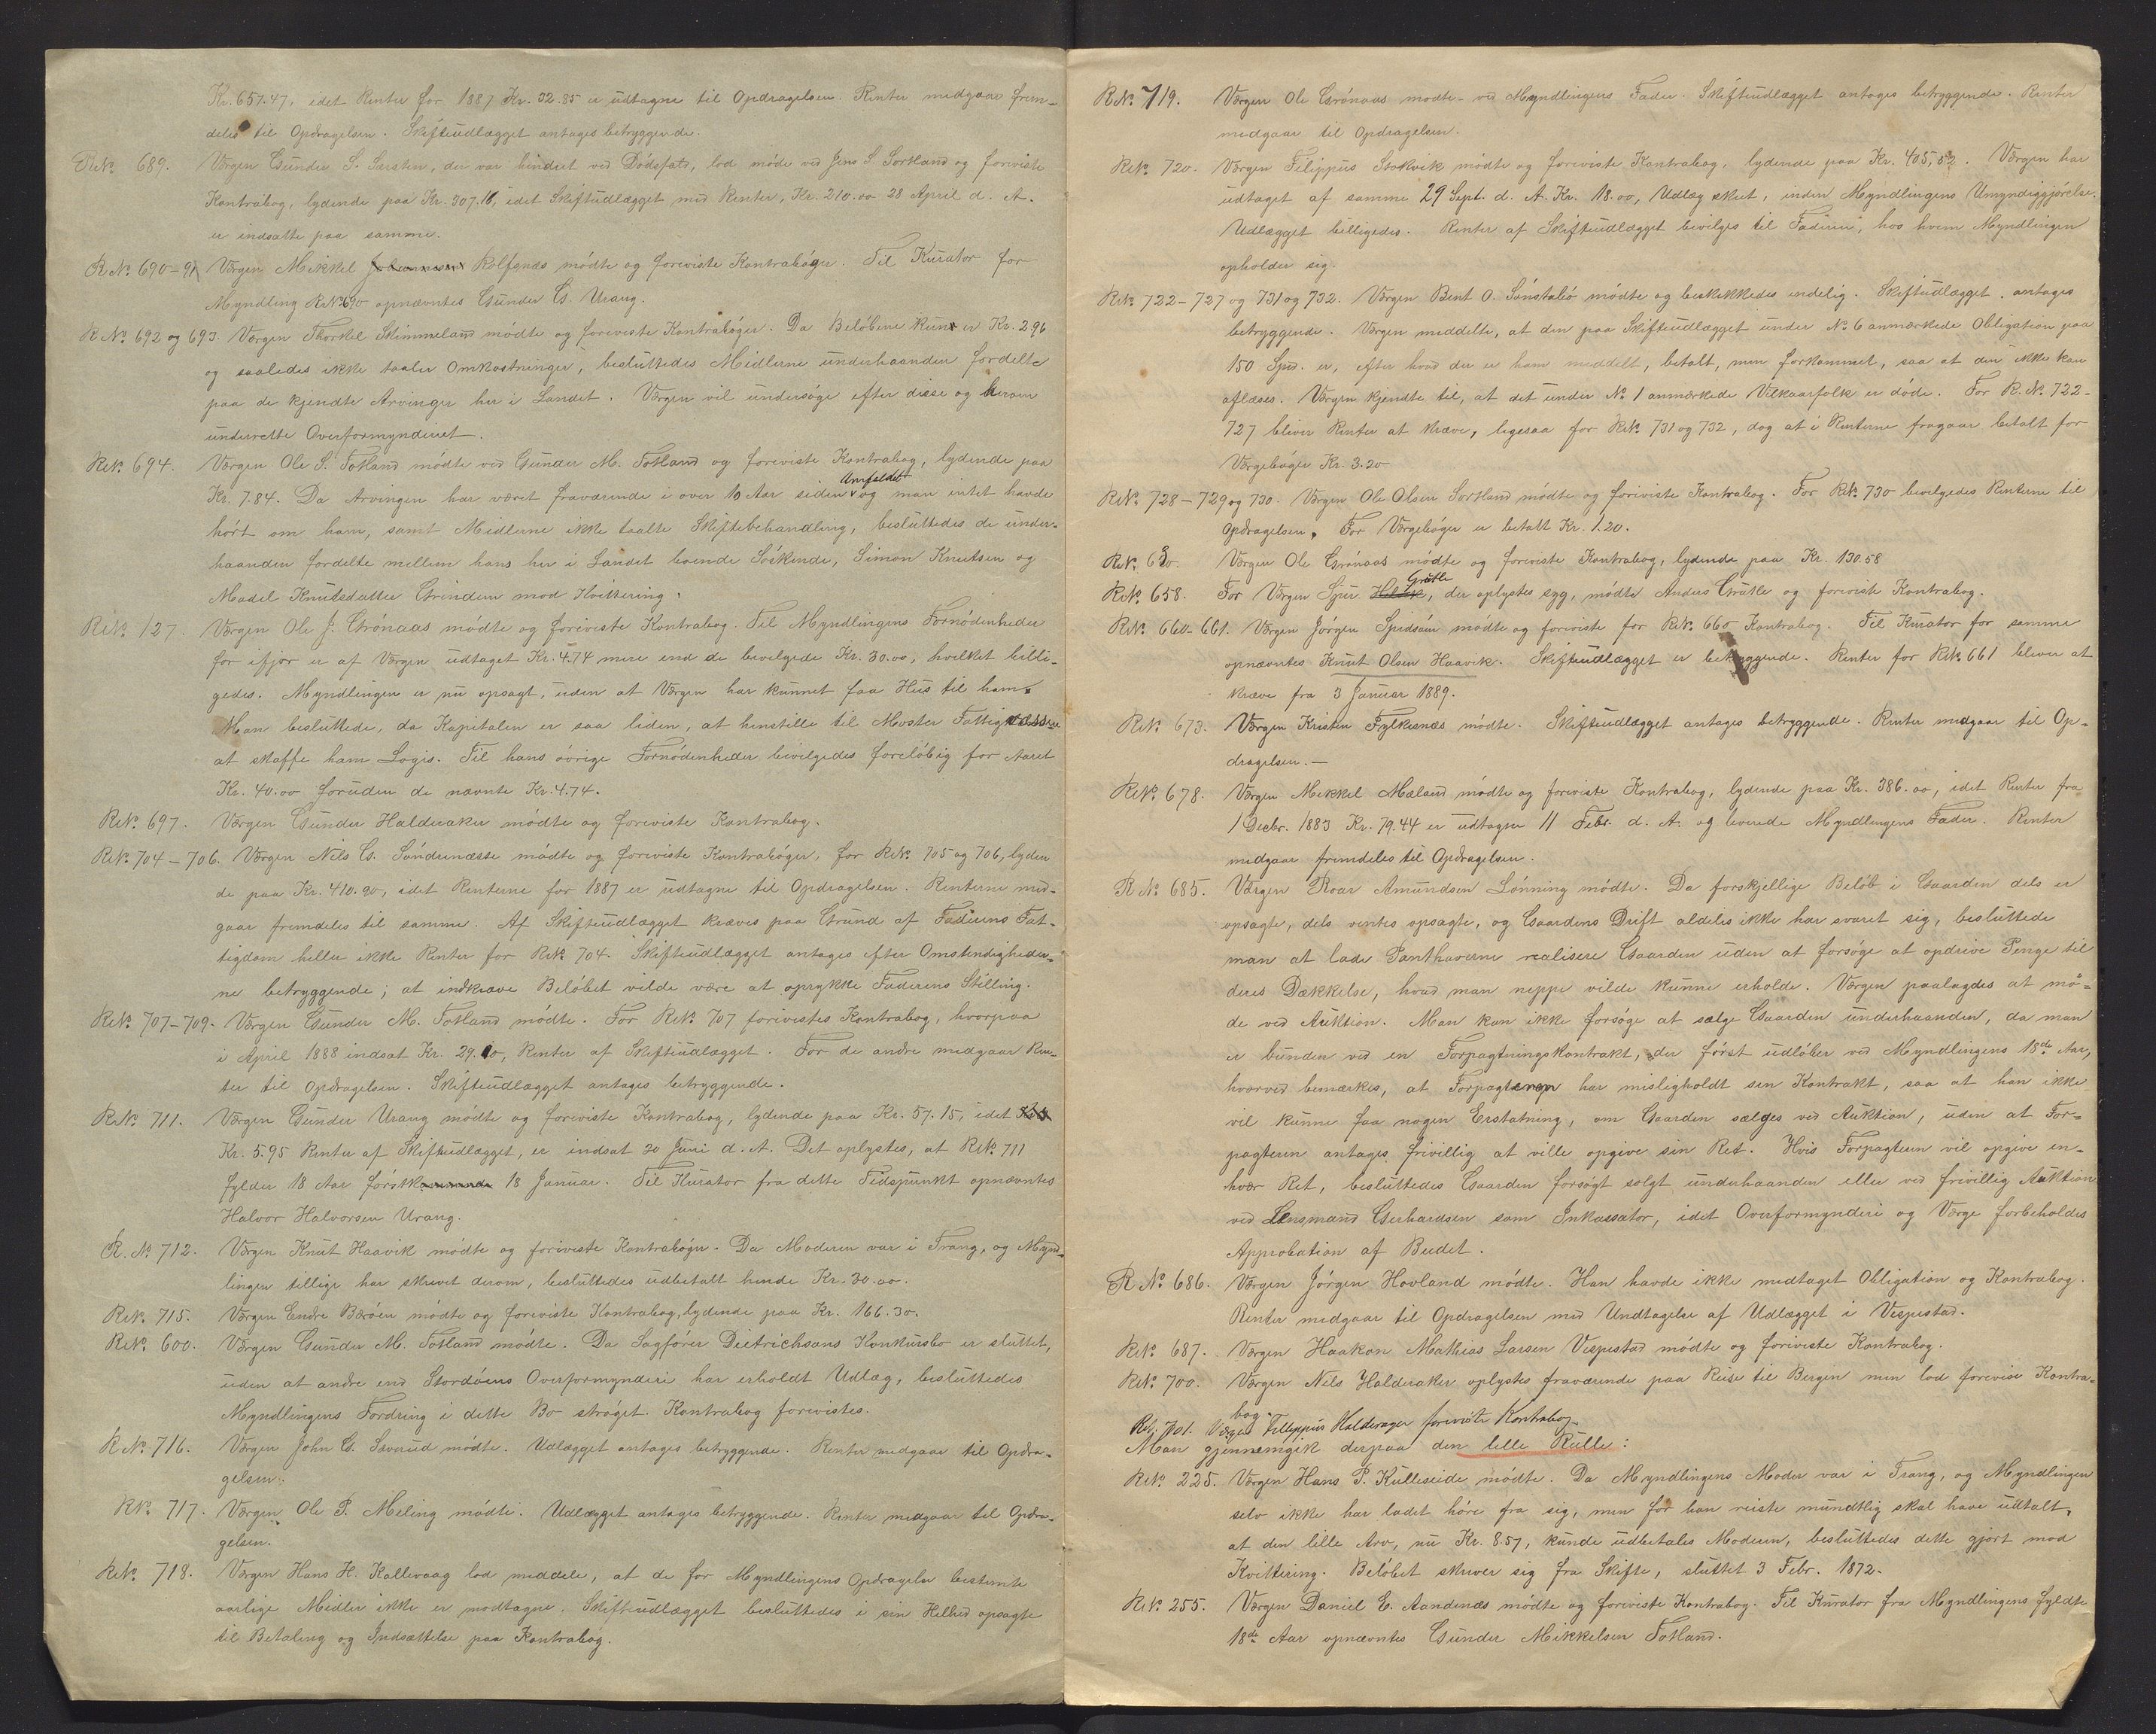 Kr. 657.47, idet Renter for 1887 Kr. 32.85 er udtagne til Opdragelsen. Renter medgaar frem-
deles til Opdragelsen. Skifteudlægget antages betryggende.
R.No. 689. Værgen Gunder S. Sortland, der var hindret ved Dødsfald, lod møde ved Jens S. Sortland og foreviste
Kontrabog, lydende paa Kr. 307.16, idet Skifteudlægget med Renter, Kr. 210.00 28 April d. A.
er indsatte paa samme.
R.No. 690-91 Værgen Mikkel Rolfsnæs mødte og foreviste Kontrabøger. Til Kurator for
Myndling R.No. 690 opnævntes Gunder G. Urang.
R.No. 692 og 693 Værgen Thorkel Stimmeland mødte og foreviste Kontrabøger. Da Beløbene kun er Kr. 2.96
og saaledes ikke taaler Omkostninger, besluttedes Midlerne underhaanden fordelte
paa de kjendte Arvinger her i Landet. Værgen vil undersøge efter disse og herom
underrette Overformynderiet.
R.No. 694. Værgen Ole S. Totland mødte ved Gunder M. Totland og foreviste Kontrabog, lydende paa
Kr. 7.84. Da Arvingen har været fraværende i over 10 Aar siden Arvefaldet og man intet havde
hørt om ham, samt Midlerne ikke taalte Skiftebehandling, besluttedes de under-
haanden fordelte mellem hans her i Landet boende Søskende, Simon Knutsen og
Madel Knutsdatter Grindem mod Kvittering.
R.No. 127. Værgen Ole J. Grønaas mødte og foreviste Kontrabog. Til Myndlingens Fornødenheder
for ifjor er af Værgen udtaget Kr. 4.74 mere end de bevilgede Kr. 30.00, hvilket billi-
gedes. Myndlingen er nu opsagt, uden at Værgen har kunnet faa Hus til ham.
Man besluttede, da Kapitalen er saa liden, at henstille til Moster Fattigvæsen
at skaffe ham Logis. Til hans øvrige Fornødenheder bevilgedes foreløbig for Aaret
Kr. 40.00 foruden de nævnte Kr. 4.74.
R.No. 697. Værgen Gunder Halderaker mødte og foreviste Kontrabog.
R.No. 704-706. Værgen Nils G. Søndenæsse mødte og foreviste Kontrabøger, for R.No. 705 og 706, lyden
de paa Kr. 410.90, idet Renterne for 1887 er udtagne til Opdragelsen. Renterne med-
gaar fremdeles til samme. Af Skifteudlægget kræves paa Grund af Faderens Fat-
tigdom heller ikke Renter for R.No. 704. Skifteudlægget antages efter Omstendigheder-
ne betryggende; at indkræve Beløbet vilde være at oprykke Faderens Stilling.
R.No. 707-709. Værgen Gunder M. Totland mødte. For R.No. 707 forevistes Kontrabog, hvorpaa
i April 1888 indsat Kr. 29.10, Renter af Skifteudlægget. For de andre medgaar Ren-
ter til Opdragelsen. Skifteudlægget antages betryggende.
R.No. 711. Værgen Gunder Urang mødte og foreviste Kontrabog, lydende paa Kr. 57.15, idet
Kr. 5.95 Renter af Skifteudlægget, er indsat 20 Juni d. A. Det oplystes, at R.No. 711
fylder 18 Aar førstk 18 Januar. Til Kurator fra dette Tidspunkt opnævntes
Halvor Halvorsen Urang.
R.No. 712. Værgen Knut Haavik mødte og foreviste Kontrabøger. Da Moderen var i Trang, og Mynd-
lingen tillige har skrevet derom, besluttedes udbetalt hende Kr. 30.00.
R.No. 715. Værgen Endre Bærøen mødte og foreviste Kontrabog, lydende paa Kr. 166.30.
R.No. 600. Værgen Gunder M. Totland mødte. Da Sagfører Dietrichsons Konkursbo er sluttet,
uden at andre end Stordøens Overformynderi har erholdt Udlæg, besluttedes
Myndlingens Fordring i dette Bo strøget. Kontrabog forevistes.
R.No. 716. Værgen John G. Sævrud mødte. Udlægget antages betryggende. Renter medgaar til Opdra-
gelsen.
R.No. 717. Værgen Ole P. Meling mødte. Udlægget antages betryggende. Renter medgaar til Opdra-
gelsen.
R.No. 718. Værgen Hans H. Kallevaag lod meddele, at de for Myndlingens Opdragelse bestemte
aarlige Midler ikke er modtagne. Skifteudlægget besluttedes i sin Helhed opsagte
til Betaling og Indsættelse paa Kontrabog.
R.No. 719. Værgen Ole Grønaas mødte ved Myndlingens Fader. Skifteudlægget antages betryggende. Renter
medgaar til Opdragelsen.
R.No. 720. Værgen Filippus Stokvik mødte og foreviste Kontrabog, lydende paa Kr. 405,52. Værgen har
udtaget af samme 29 Sept. d. A. Kr. 18.00, Udlæg skeet, inden Myndlingens Umyndiggjørelse.
Udlægget billigedes. Renter af Skifteudlægget bevilges til Faderen, hos hvem Myndlingen
opholder sig.
R.No. 722-727 og 731 og 732. Værgen Bent O. Sønstabø mødte og beskikkedes endelig. Skifteudlægget antages
betryggende. Værgen meddelte, at den paa Skifteudlægget under No. 6 anmærkede Obligation paa
150 Spd. er, efter hvad der er ham meddelt, betalt, men forkommet, saa at den ikke kan
aflæses. Værgen kjendte til, at det under No. 1 anmærkede Vilkaarfolk er døde. For R.No. 722-
727 bliver Renter at kræve, ligesaa for R.No. 731 og 732, dog at i Renterne fragaar betalt for
Værgebøger Kr. 3.20
R.No. 728-729 og 730. Værgen Ole Olsen Sortland mødte og foreviste Kontrabog. For R.No. 730 bevilgedes Renterne til
Opdragelsen. For Værgebøger er betalt Kr. 1.20.
R.No. 630. Værgen Ole Grønaas mødte og foreviste Kontrabog, lydende paa Kr. 130.58
R.No. 658. For Værgen Sjur Grutle, der oplystes syg, mødte Anders Grutle og foreviste Kontrabog.
R.No. 660-661. Værgen Jørgen Spidsøen mødte og foreviste for R.No. 660 Kontrabog. Til Kurator for samme
opnævntes Knut Olsen Haavik. Skifteudlægget er betryggende. Renter for R.No. 661 bliver at
kræve fra 3 Januar 1889.
R.No. 673. Værgen Kristen Fylkesnæs mødte. Skifteudlægget antages betryggende. Renter medgaar til Op-
dragelsen. —
R.No. 678. Værgen Mikkel Mæland mødte og foreviste Kontrabog, lydende paa Kr. 386.00, idet Renter fra
1 Decbr. 1883 Kr. 79.44 er udtagne 11 Febr. d. A. og leverede Myndlingens Fader. Renter
medgaar fremdeles til Opdragelsen.
R.No. 685. Værgen Roar Amundsen Lønning mødte. Da forskjellige Beløb i Gaarden dels er
opsagte, dels ventes opsagte, og Gaardens Drift aldeles ikke har svaret sig, besluttede
man at lade Panthaverne realisere Gaarden uden at forsøge at opdrive Penge til
deres Dækkelse, hvad man neppe vilde kunne erholde. Værgen paalagdes at mø-
de ved Auktion. Man kan ikke forsøge at sælge Gaarden underhaanden, da man
er bunden ved en Forpagtningskontrakt, der først udløber ved Myndlingens 18de Aar,
hvorved bemærkes, at Forpagteren har misligholdt sin Kontrakt, saa at han ikke
vil kunne faa nogen Erstatning, om Gaarden sælges ved Auktion, uden at For-
pagteren antages frivillig at ville opgive sin Ret. Hvis Forpagteren vil opgive en-
hver Ret, besluttedes Gaarden forsøgt solgt underhaanden eller ved frivillig Auktion
ved Lensmand Gerhardsen som Inkassator, idet Overformynderi og Værge forbeholdes
Approbation af Budet.
R.No. 686. Værgen Jørgen Hovland mødte. Han havde ikke medtaget Obligation og Kontrabog.
Renter medgaar til Opdragelsen med Undtagelse af Udlægget i Vespestad.
R.No. 687. Værgen Haakon Mathias Larsen Vespestad mødte og foreviste Kontrabog.
R.No. 700. Værgen Nils Halderaker oplystes fraværende paa Reise til Bergen men lod forevise Kontra-
bog.
R.No. 701. Værgen Fillippus Halderager foreviste Kontrabog.
Man gjennemgik derpaa den lille Rulle:
R.No. 225. Værgen Hans P. Kulleseide mødte. Da Myndlingens Moder var i Trang, og Myndlingen
selv ikke har ladet høre fra sig, men før han reiste mundtlig skal have udtalt,
at den lille Arv, nu Kr. 8.57, kunde udbetales Moderen, besluttedes dette gjort mod
Kvittering. Beløbet skriver sig fra Skifte, sluttet 3 Febr. 1872.
R.No. 255. Værgen Daniel E. Aandenæs mødte og foreviste Kontrabog. Til Kurator fra Myndlingens fyldte
18de Aar opnævntes Gunder Mikkelsen Totland.